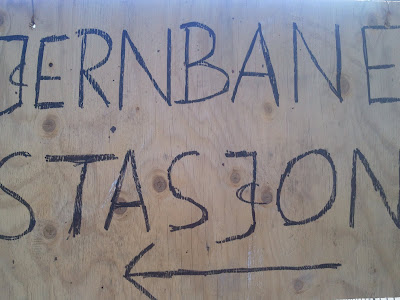 JERNBANE
STASJON